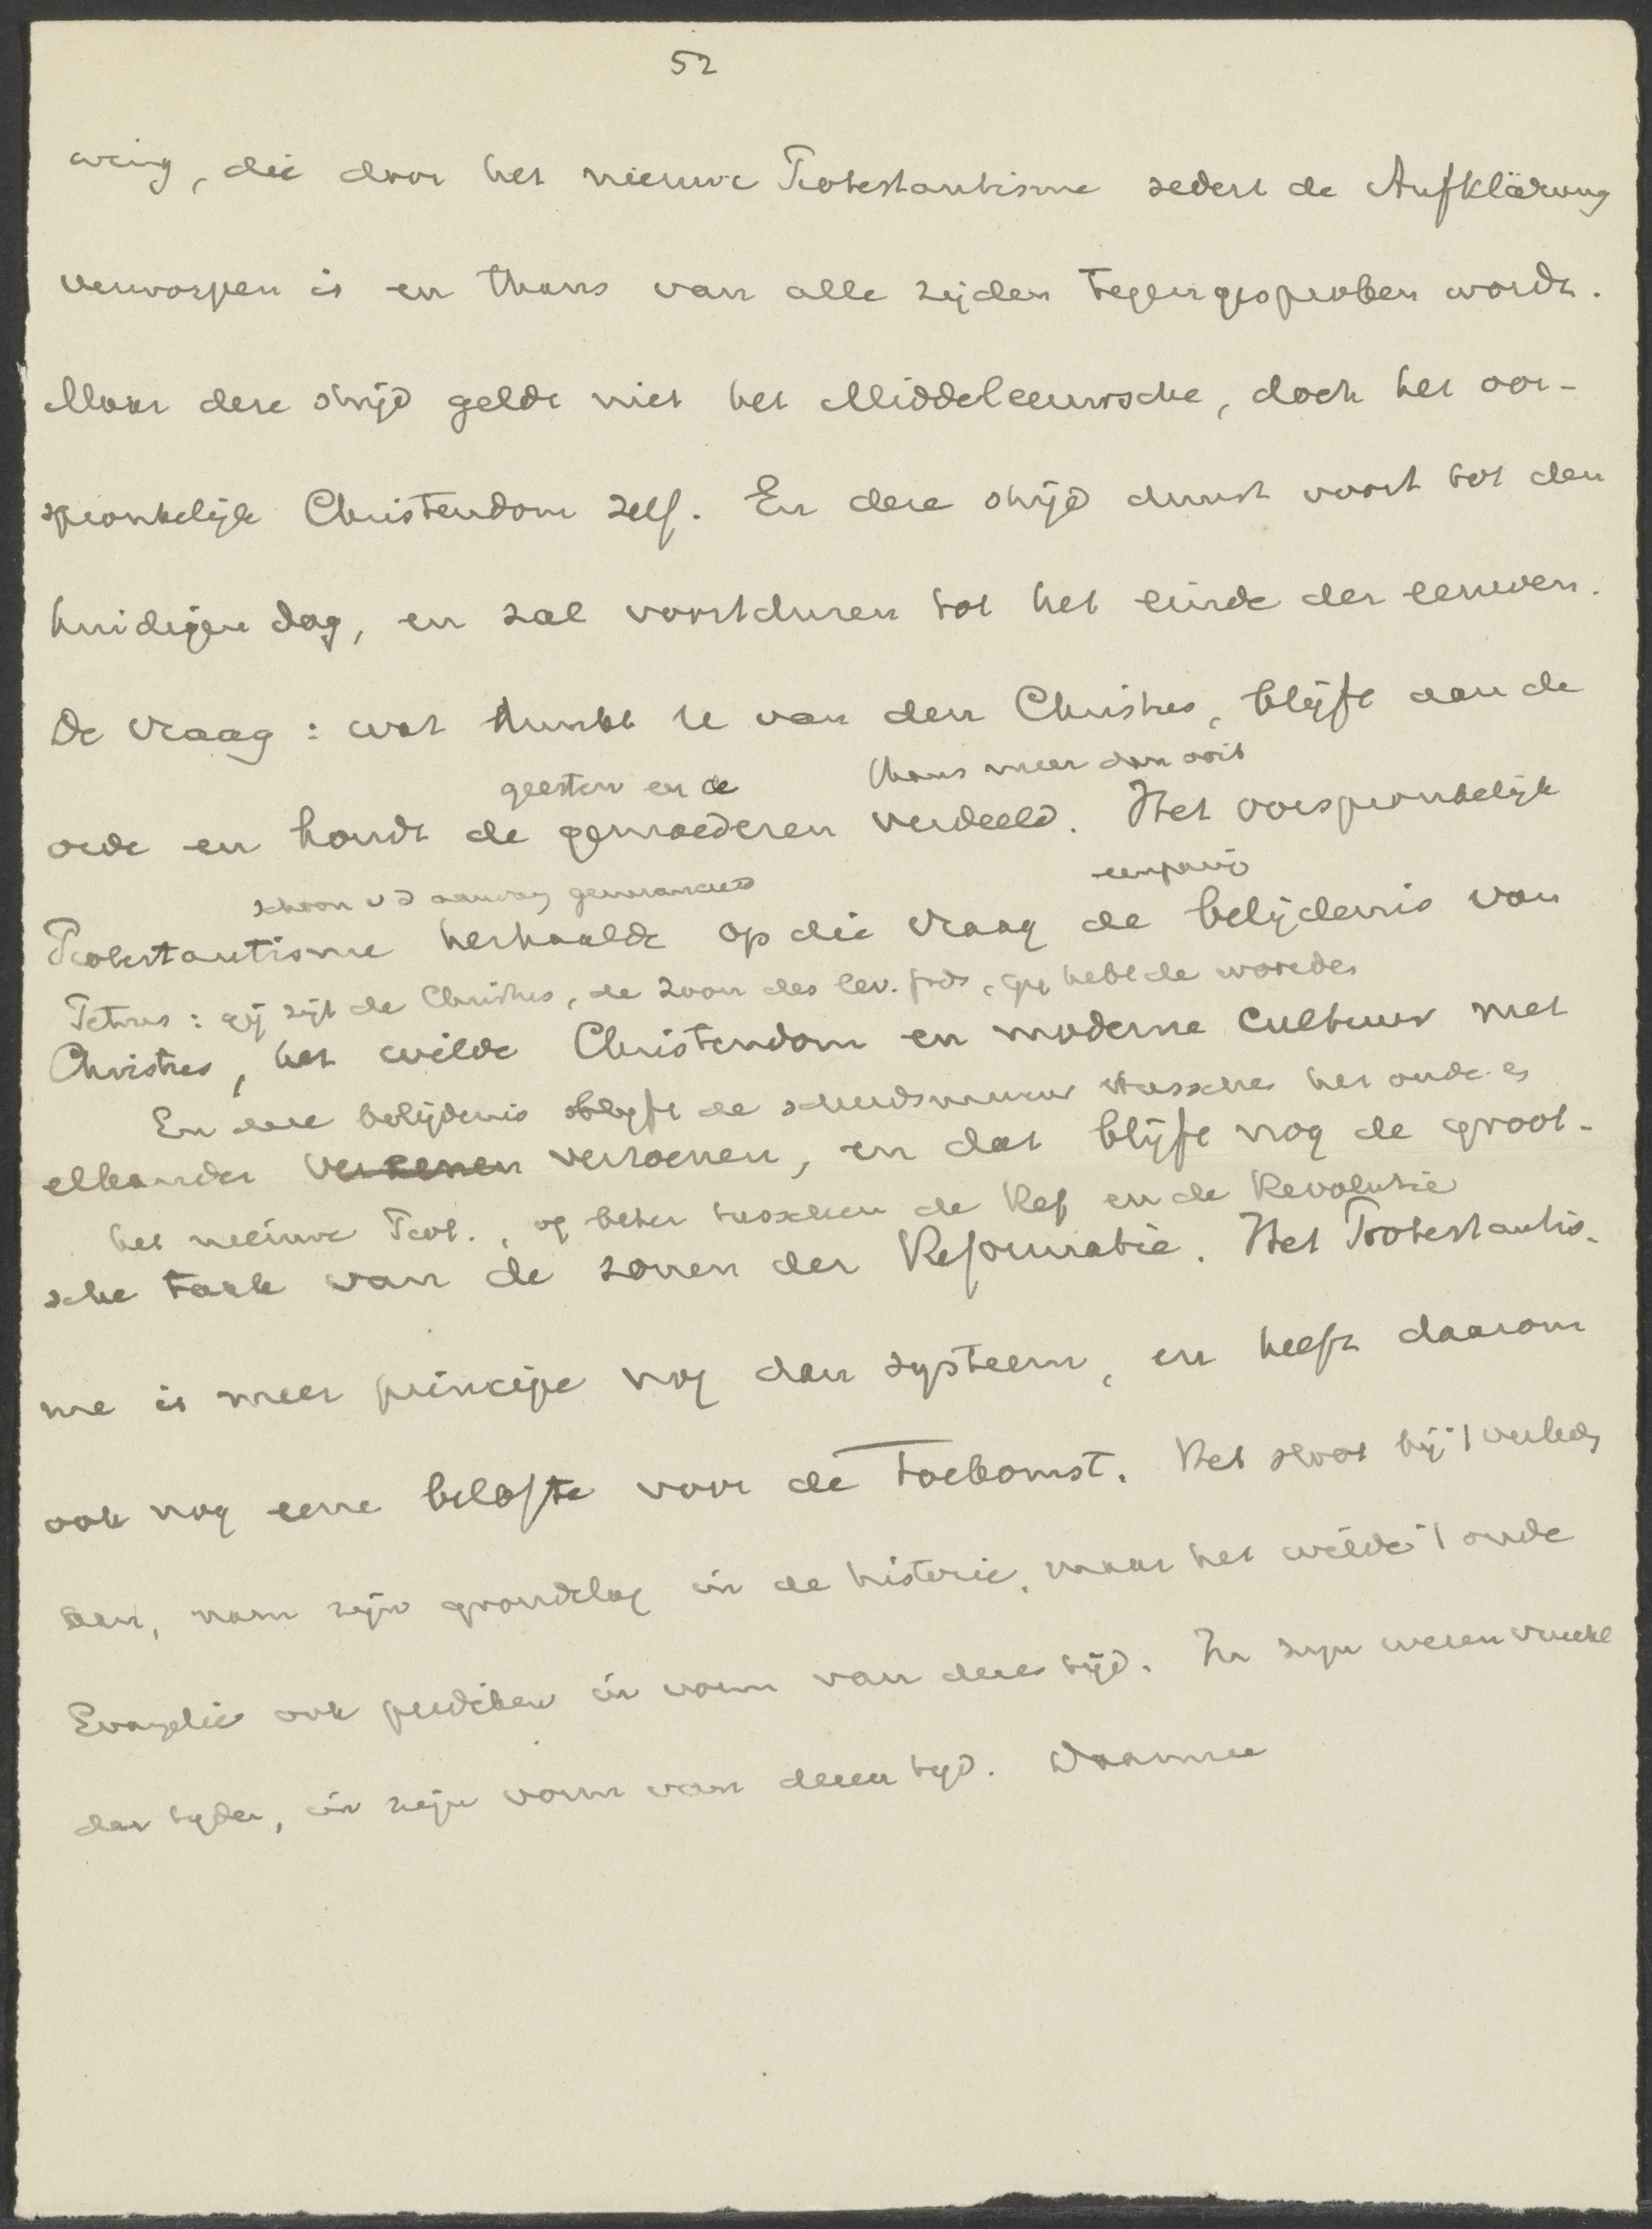 52
wing, die door het nieuwe Protestantisme sedert de Aufklärung
verworpen is en thans van alle zijden tegengesproken wordt.
Maar deze strijd geldt niet het Middeleeuwsche, doch het oor-
spronkelijk Christendom zelf. En deze strijd duurt voort tot den
huidigen dag, en zal voortduren tot het einde der eeuwen.
De vraag: wat dunkt U van den Christus, blijft aan de
geesten en de thans meer dan ooit
orde en houdt de gemoederen verdeeld. Het oorspronkelijk
schoon v d aanvang eenparig
Protestantisme herhaalde op die vraag de belijdenis van
Petrus: gij zijt de Christus, de Zoon des lev. Gods, gij hebt de woorden
Christus, het wilde Christendom en moderne cultuur met
En deze belijdenis blijft de scheidsmuur tusschen het oude en
elkander verzoenen, en dat blijft nog de groot-
het nieuwe Prot., of beter tusschen de Ref en de Revolutie
sche taak van de zonen der Reformatie. Het Protestantis-
me is meer principe nog dan systeem, en heeft daarom
ook nog eene belofte voor de toekomst. Het sloot bij 't verled
en, nam zijn grondslag in de historie, maar het wilde 't oude
Evangelie ook prediken in vorm van dezen tijd. In zijn wezen
der tijden, in zijn vorm van dezen tijd. Daarmee